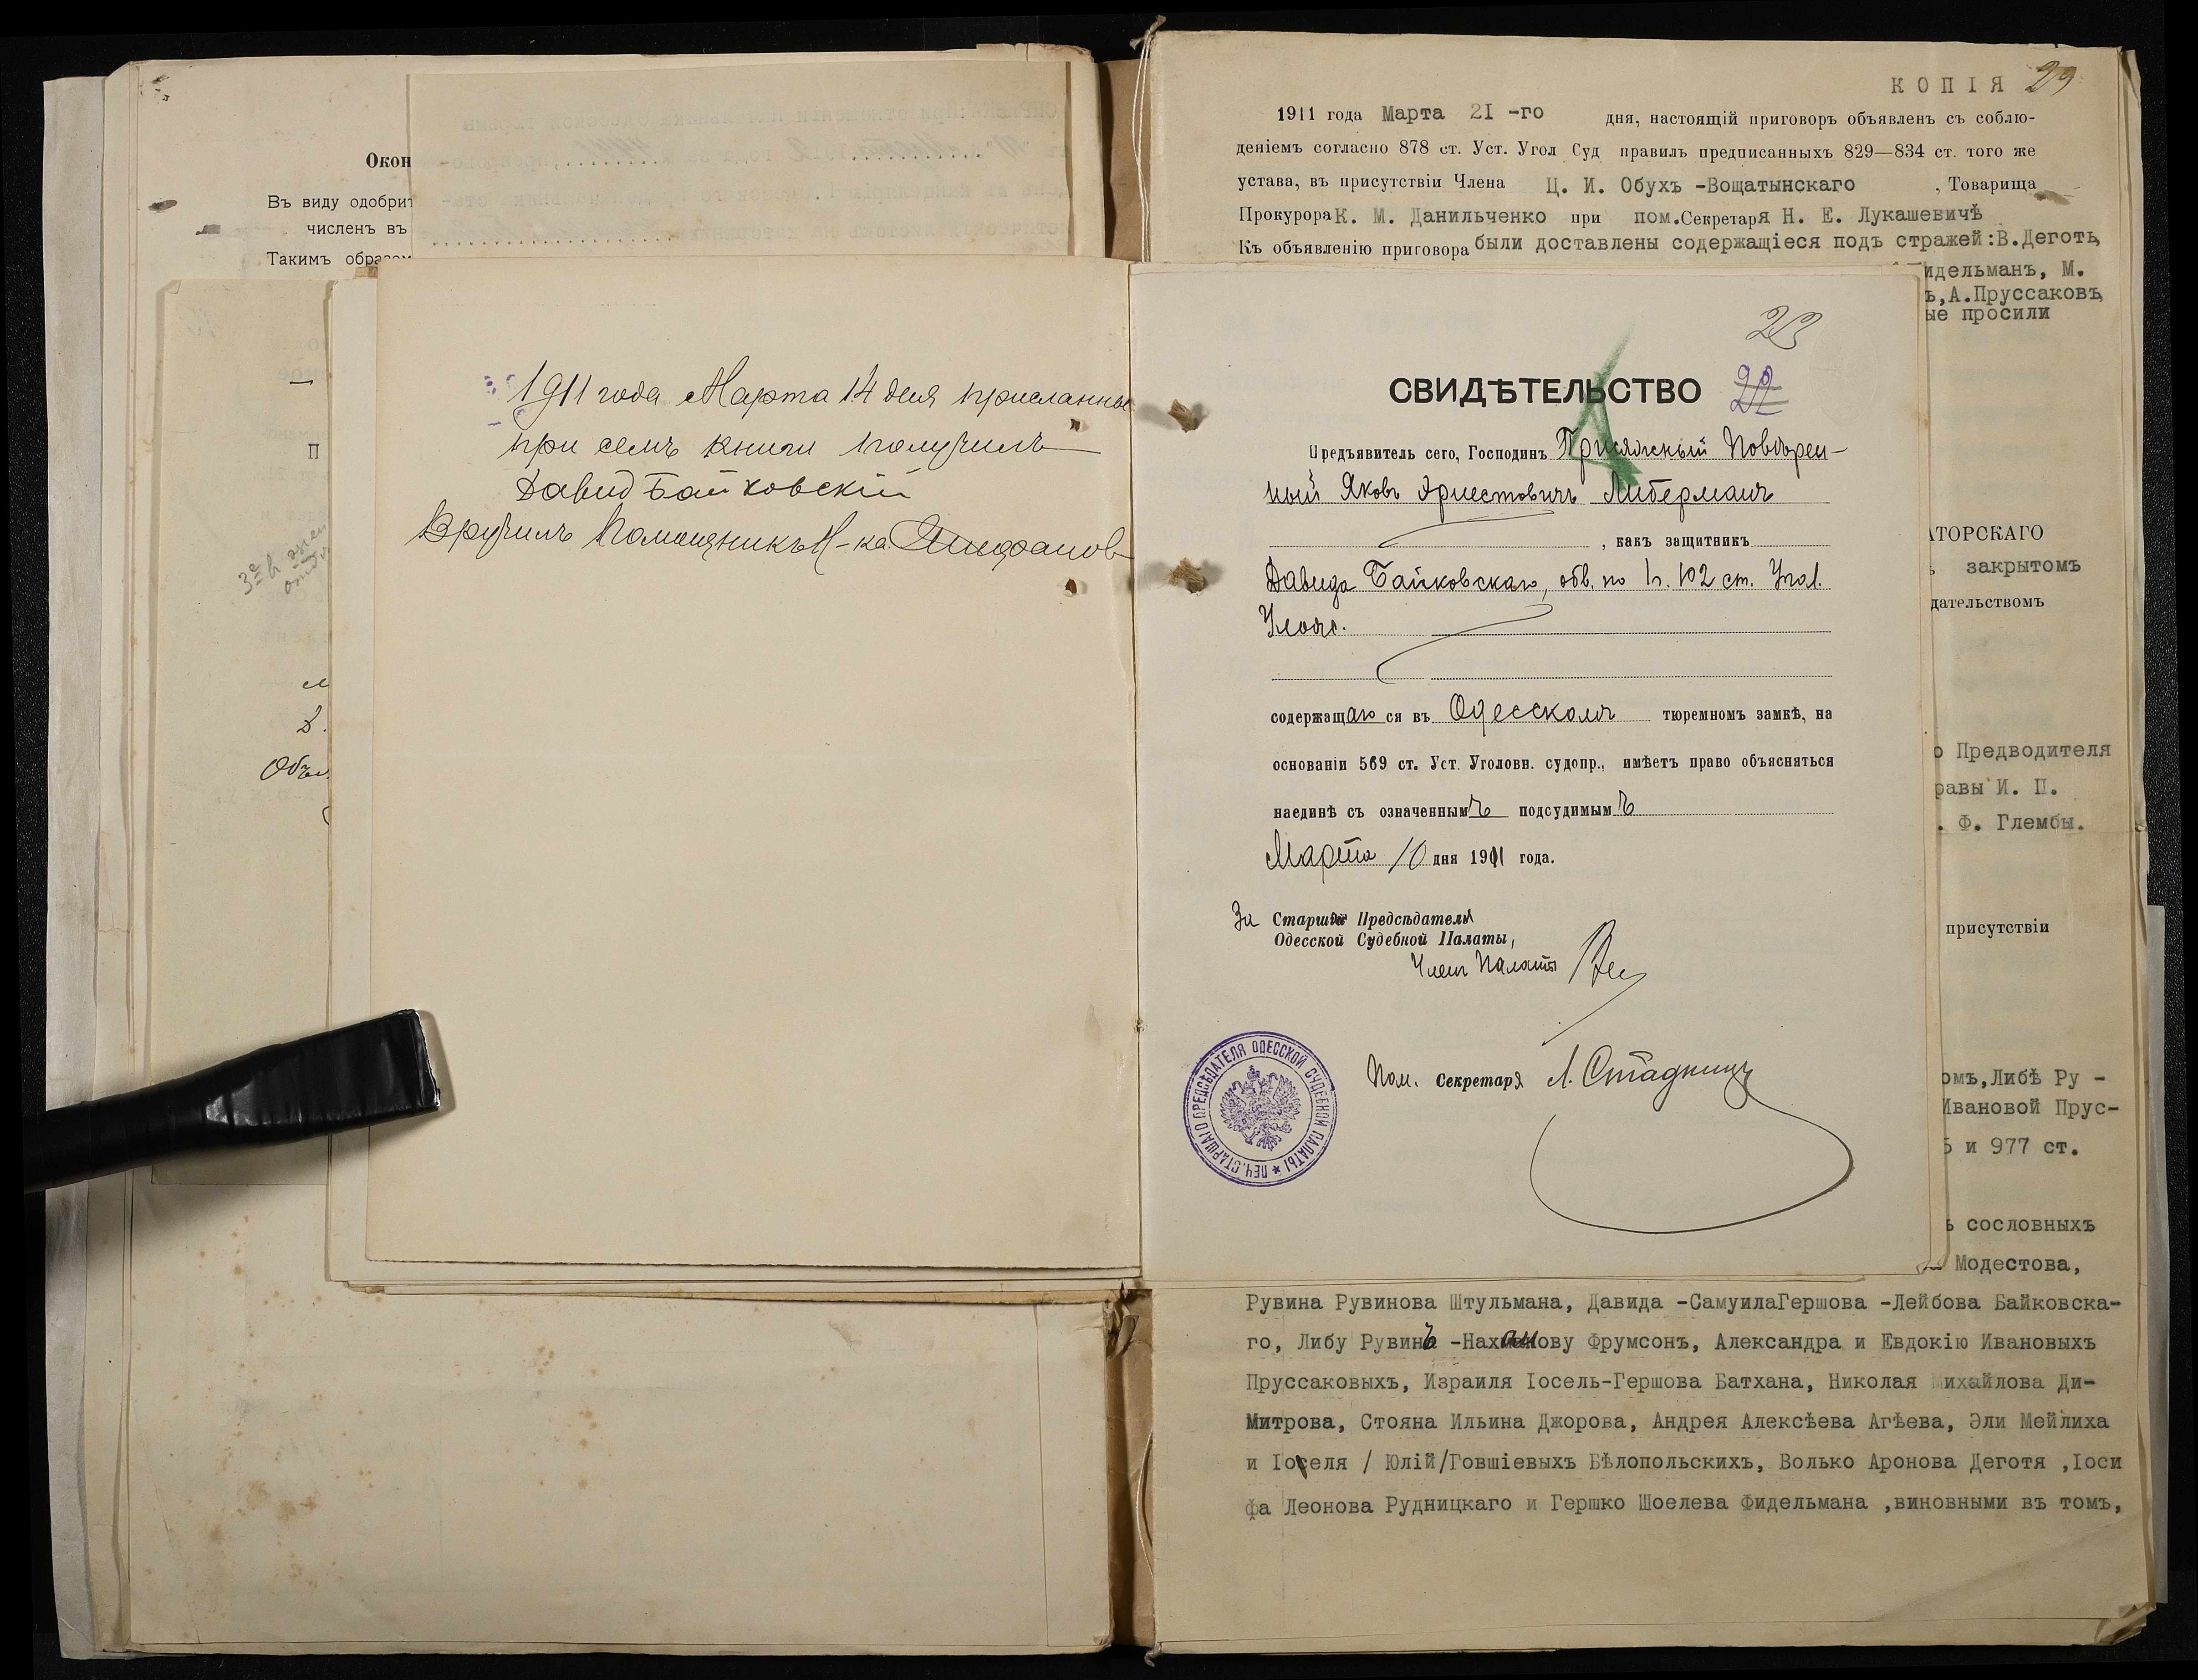 Окон
Въ виду одобрит
численъ въ
Такимъ образом
П
1911 года Марта 14 дня присланные
при семъ книги получилъ
Давид Байковскій
Вручилъ Помощникъ Н-ка
КОПІЯ 29
1911 года Марта 2I -го дня, настоящій приговоръ объявленъ съ соблю-
деніемъ согласно 878 ст. Уст. Угол Суд правилъ предписанныхъ 829—834 ст. того же
устава, въ присутствіи Члена Ц. И. Обухъ -Вощатынскаго , Товарища
Прокурора К. М. Данильченко при пом.Секретаря Н. Е. Лукашевичѣ
Къ объявленію приговора были доставлены содержащіеся подъ стражей:В.Деготь,
идельманъ, М.
ъ,А.Пруссаковъ,
ые просили
23
СВИДѢТЕЛЬСТВО 22
Предъявитель сего, Господинъ Присяжный Повѣрен-
ный Яковъ Эрнестовичъ Либерманъ
, какъ защитникъ
Давида Байковскаго, обв. по 1 ч. 102 ст. Угол.
Улож.
содержащаго ся въ Одесскомъ тюремномъ замкѣ, на
основаніи 569 ст. Уст. Уголовн. судопр., имѣетъ право объясняться
наединѣ съ означеннымъ подсудимымъ
Марта 10 дня 1911 года.
За Старшаго Предсѣдателя
Одесской Судебной Палаты,
Членъ Палаты
Пом. Секретаря Л. Стадницъ
ПЕЧ. СТАРШАГО ПРЕДСѢДАТЕЛЯ ОДЕССКОЙ СУДЕБНОЙ ПАЛАТЫ
АТОРСКАГО
закрытомъ
дательствомъ
о Предводителя
равы И. П.
. Ф. Глембы.
присутствіи
омъ,Либѣ Ру -
Ивановой Прус-
5 и 977 ст.
ъ сословныхъ
Модестова,
Рувина Рувинова Штульмана, Давида -СамуилаГершова -Лейбова Байковска-
го, Либу Рувинъ -Нахманову Фрумсонъ, Александра и Евдокію Ивановыхъ
Пруссаковыхъ, Израиля Іосель-Гершова Батхана, Николая Михайлова Ди-
митрова, Стояна Ильина Джорова, Андрея Алексѣева Агѣева, Эли Мейлиха
и Іоселя / Юлій/Говшіевыхъ Бѣлопольскихъ, Волько Аронова Деготя ,Іоси
фа Леонова Рудницкаго и Гершко Шоелева Фидельмана ,виновными въ томъ,